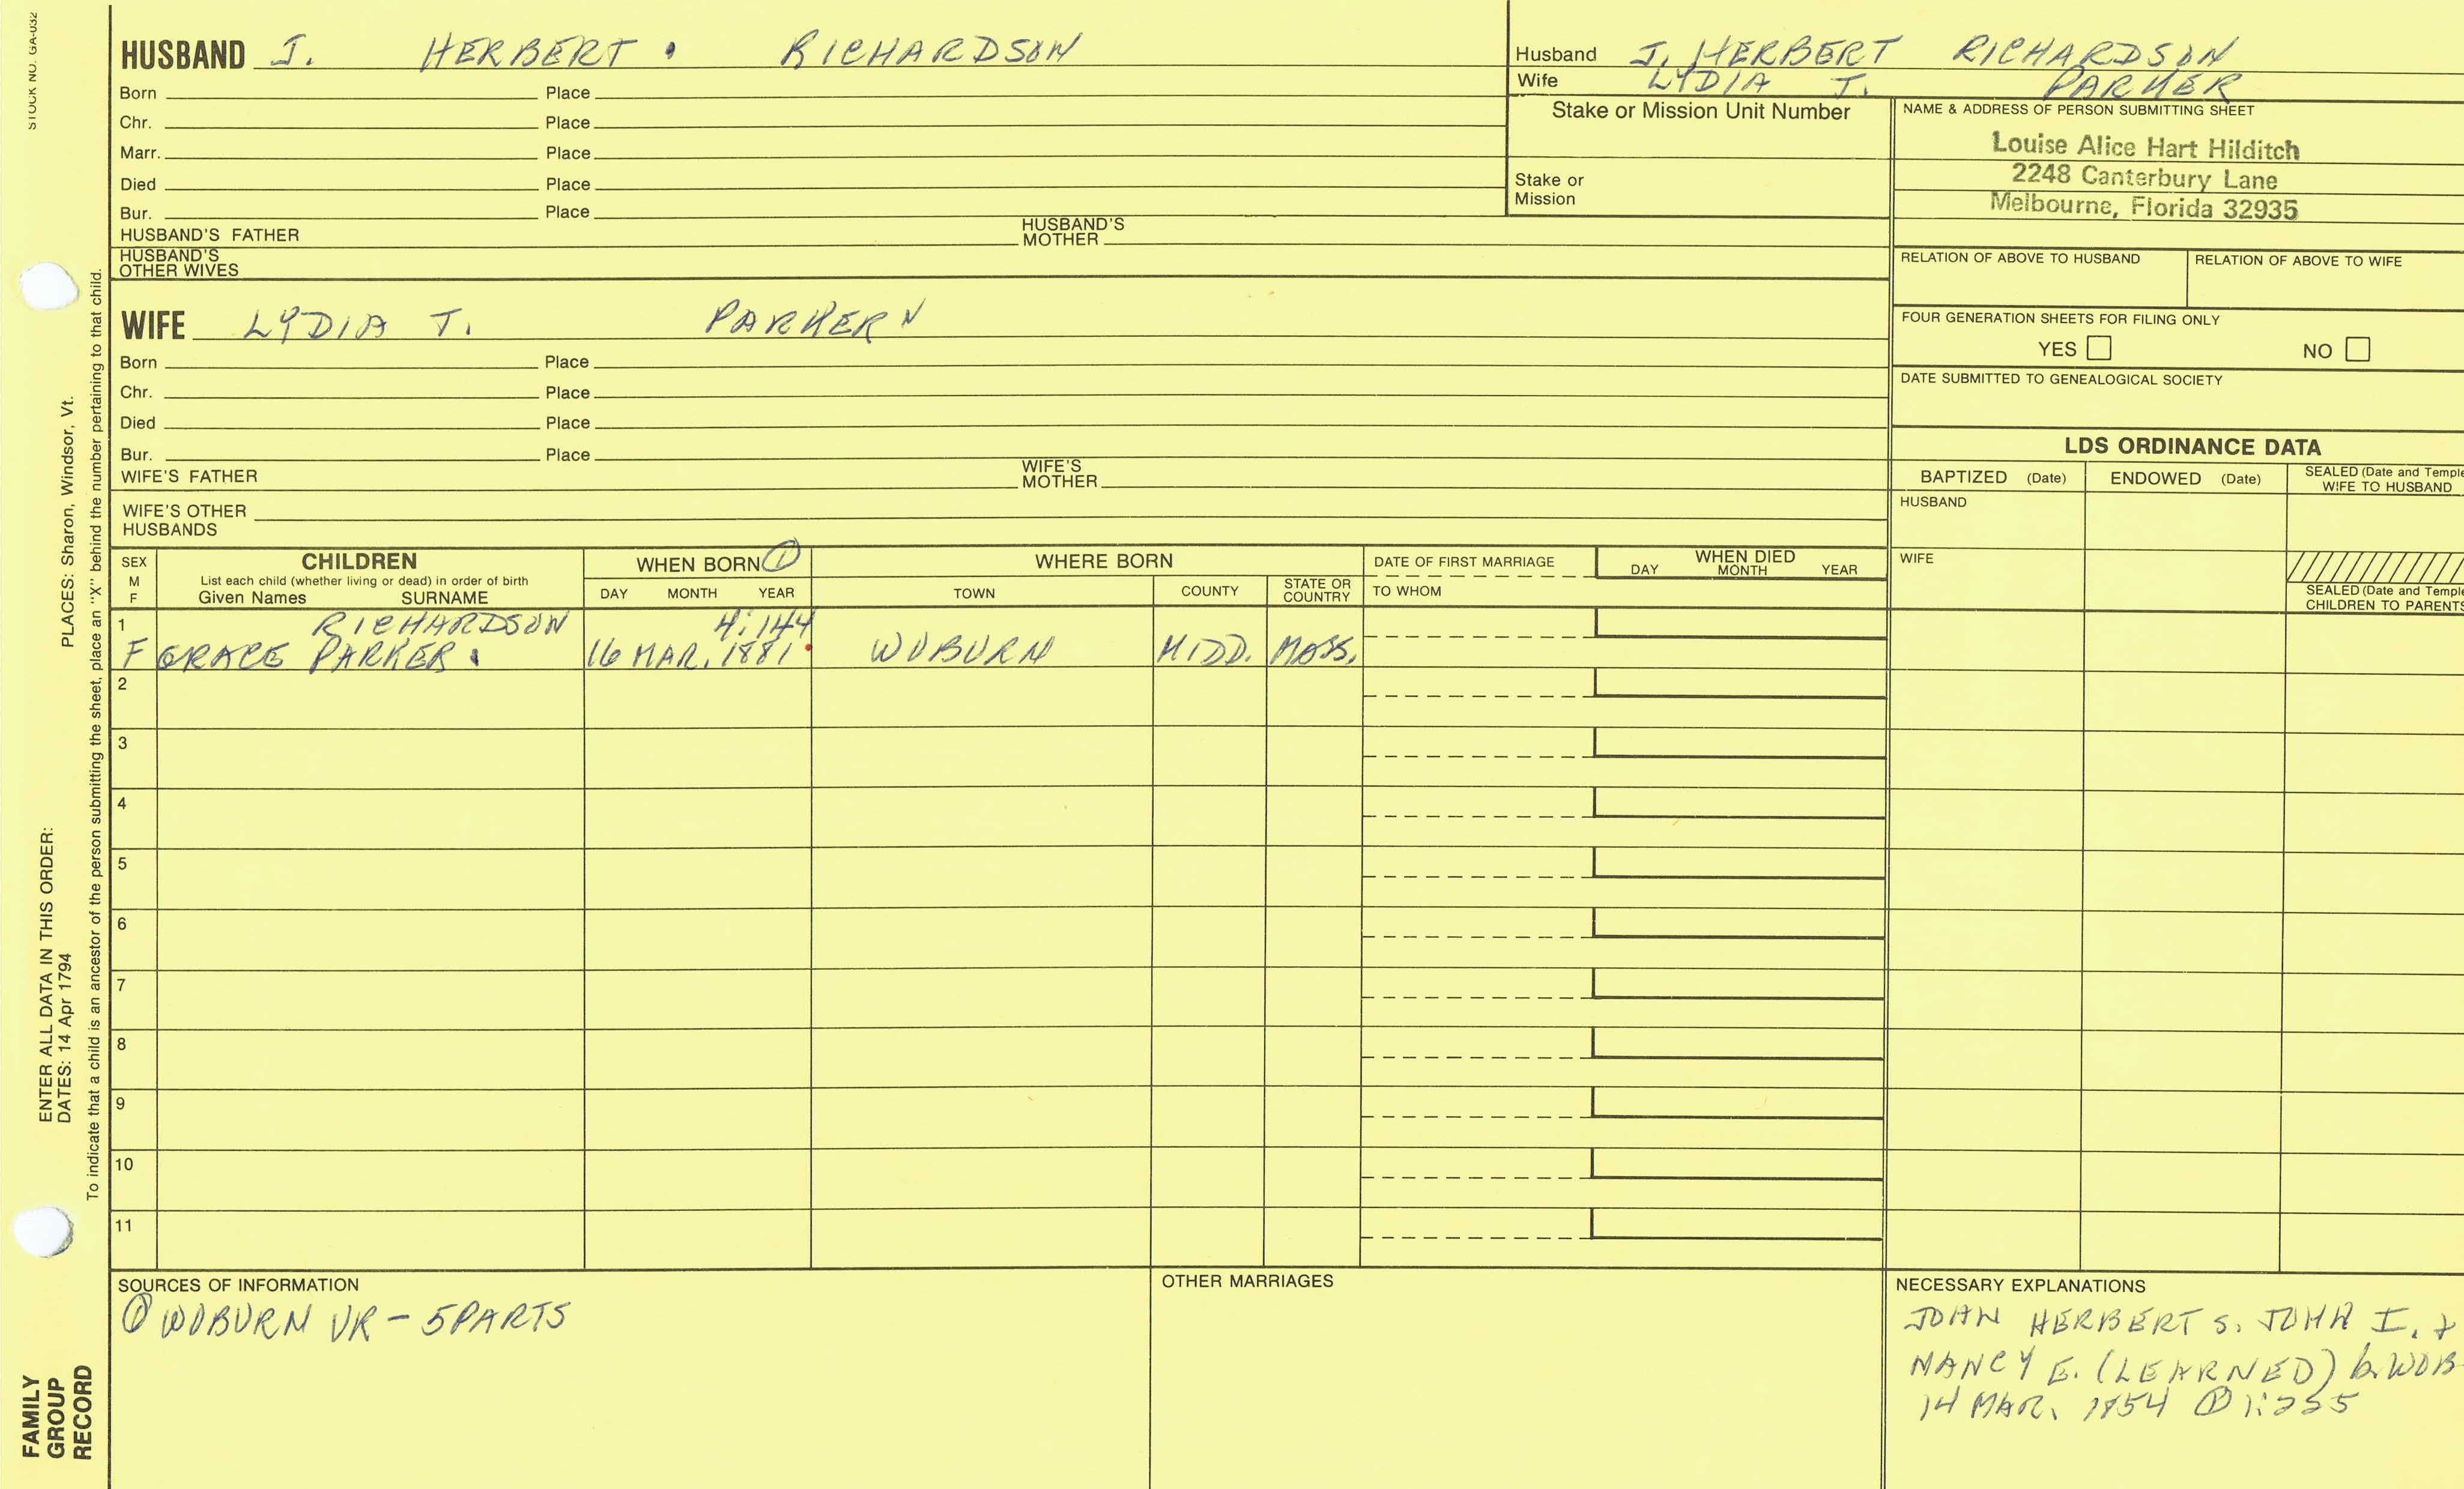 STOCK NO. GA-032
HUSBAND J. HERBERT RICHARDSON
Born Place
Chr. Place
Marr. Place
Died Place
Bur. Place
HUSBAND'S FATHER HUSBAND'S MOTHER
HUSBAND'S OTHER WIVES
WIFE LYDIA T. PARKER
Born Place
Chr. Place
Died Place
Bur. Place
WIFE'S FATHER WIFE'S MOTHER
WIFE'S OTHER HUSBANDS
Husband J. HERBERT RICHARDSON
Wife LYDIA T. PARKER
Stake or Mission Unit Number
Stake or Mission
NAME & ADDRESS OF PERSON SUBMITTING SHEET
Louise Alice Hart Hilditch
2248 Canterbury Lane
Melbourne, Florida 32935
RELATION OF ABOVE TO HUSBAND RELATION OF ABOVE TO WIFE
FOUR GENERATION SHEETS FOR FILING ONLY
YES NO
DATE SUBMITTED TO GENEALOGICAL SOCIETY
LDS ORDINANCE DATA
BAPTIZED (Date) ENDOWED (Date) SEALED (Date and Temple
WIFE TO HUSBAND
HUSBAND
WIFE
SEALED (Date and Temple
CHILDREN TO PARENTS
SEX
M
F
CHILDREN
List each child (whether living or dead) in order of birth
Given Names SURNAME
WHEN BORN ①
DAY MONTH YEAR
WHERE BORN
TOWN COUNTY STATE OR COUNTRY
DATE OF FIRST MARRIAGE
TO WHOM
WHEN DIED
DAY MONTH YEAR
1 RICHARDSON 4:144
F GRACE PARKER 16 MAR. 1881 WOBURN MIDD. MASS.
2
3
4
5
6
7
8
9
10
11
SOURCES OF INFORMATION
① WOBURN VR - 5 PARTS
OTHER MARRIAGES
NECESSARY EXPLANATIONS
JOHN HERBERT S. JOHN I. &
NANCY E. (LEARNED) b. WOB
14 MAR. 1854 ① 1:225
ENTER ALL DATA IN THIS ORDER:
DATES: 14 Apr 1794 PLACES: Sharon, Windsor, Vt.
To indicate that a child is an ancestor of the person submitting the sheet, place an "X" behind the number pertaining to that child.
FAMILY
GROUP
RECORD